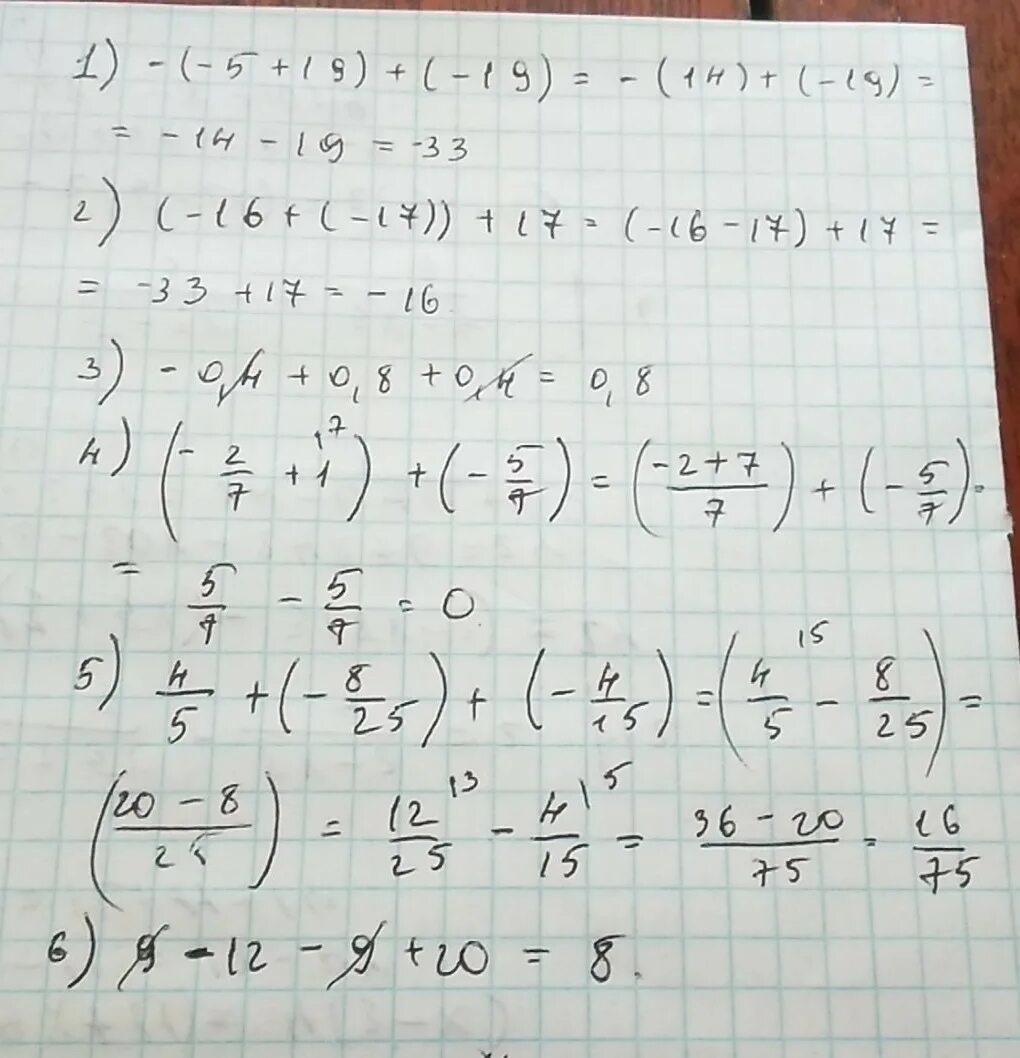 1) -(-5+19)+(-19) = -(14)+(-19) =
= -14-19 = -33
2) (-16+(-17))+17 = (-16-17)+17 =
= -33+17 = -16
3) -0,4+0,8+0,4 = 0,8
4) (-2/7+1 ,7)+(-5/7) = ((-2+7)/7)+(-5/7) =
= 5/7 - 5/7 = 0
5) 4/5+(-8/25)+(-4/15) = (4/5 ,5 - 8/25) =
((20-8)/25) = 12/25 ,3 - 4/15 ,5 = (36-20)/75 = 16/75
6) 9-12-9+20 = 8.